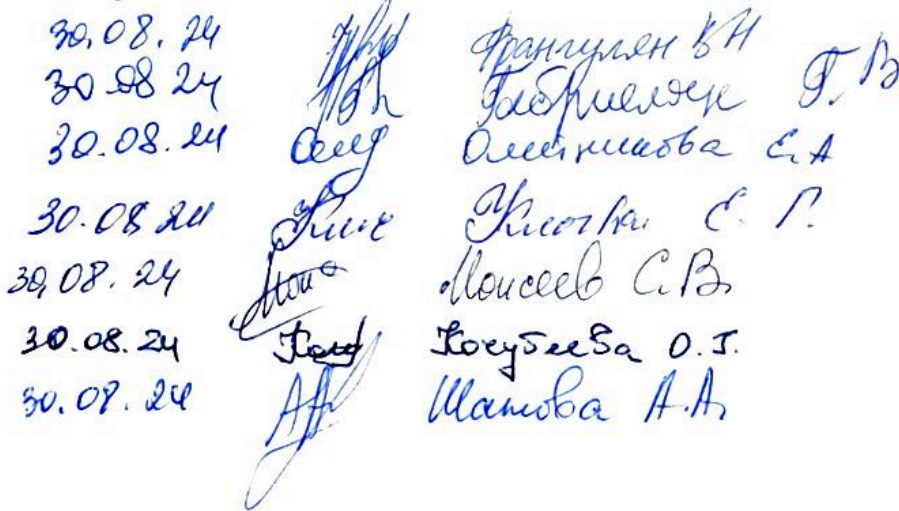 30.08.24 Франгулян В Н
30 08 24 Габриелян Г. В
30.08.24 Олейникова Е.А
30.08 24 Е. Г.
30.08.24 Моисеев С.В.
30.08.24 Кочубеева О.Г.
30.08.24 Шатова А.А.